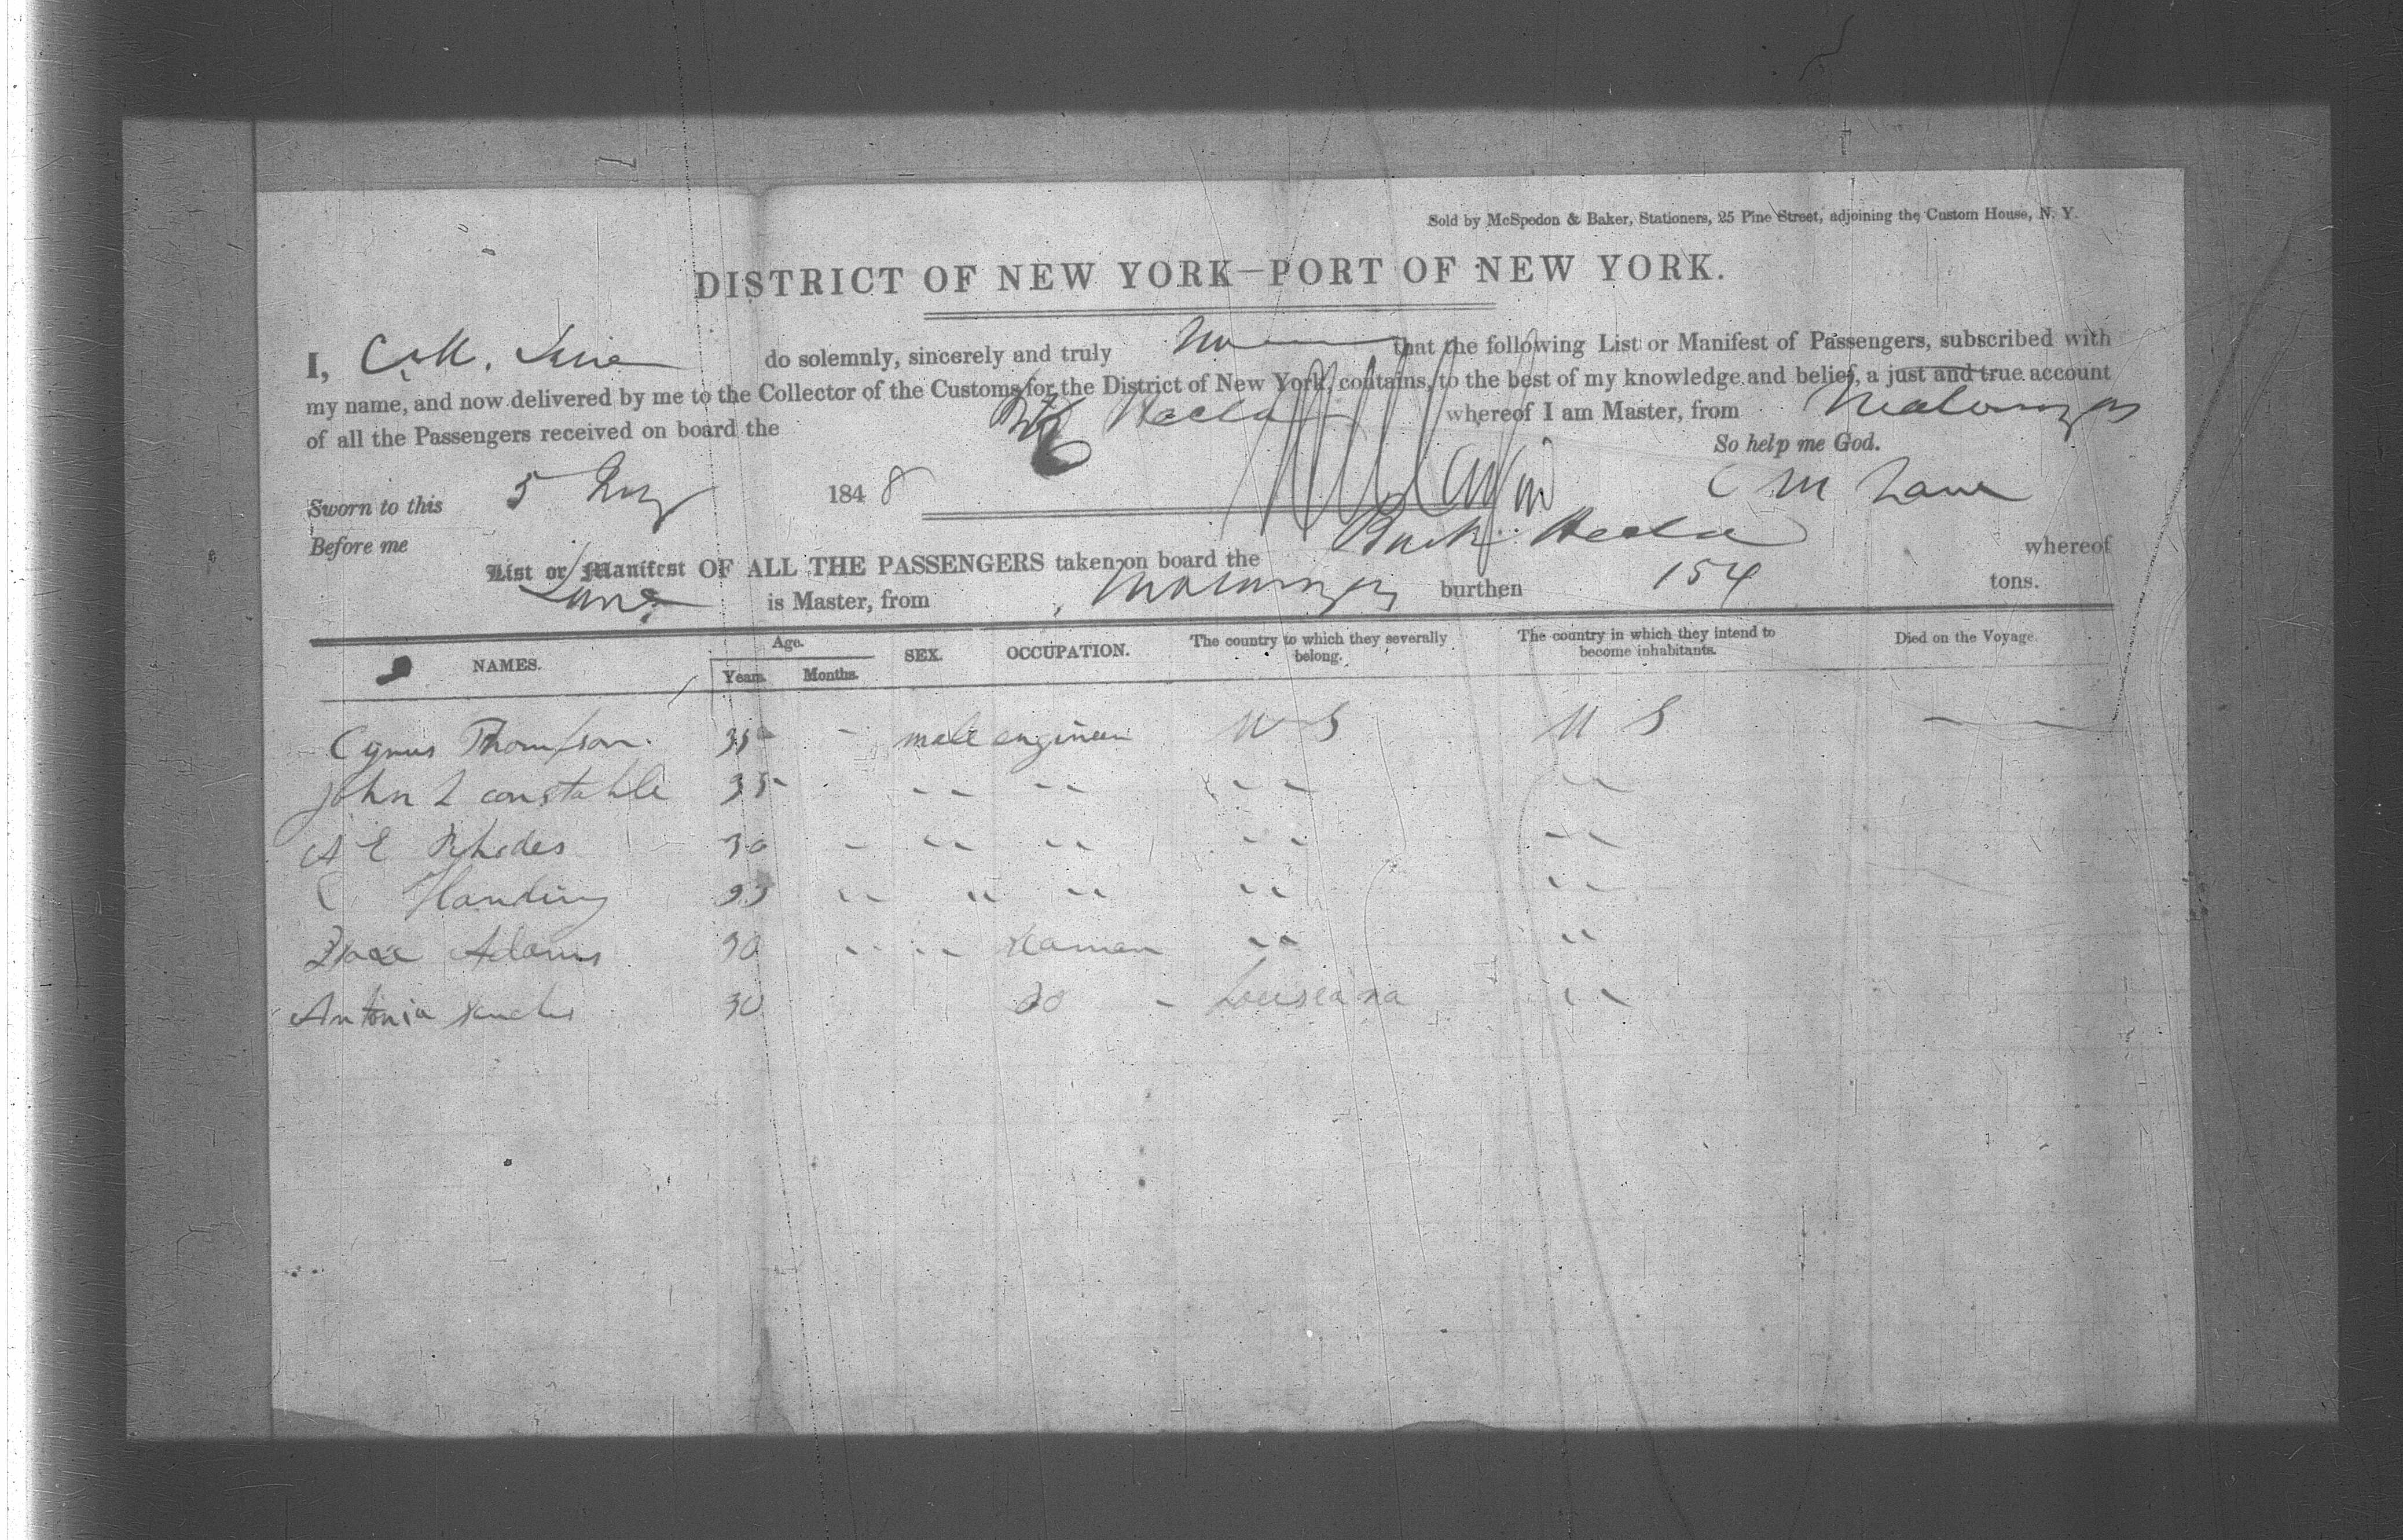 Sold by McSpedon & Baker, Stationers, 25 Pine Street, adjoining the Custom House, N. Y.
DISTRICT OF NEW YORK—PORT OF NEW YORK.
I, C. M. do solemnly, sincerely and truly that the following List or Manifest of Passengers, subscribed with
my name, and now delivered by me to the Collector of the Customs for the District of New York, contains, to the best of my knowledge and belief, a just and true account
of all the Passengers received on board the Hecla whereof I am Master, from
So help me God.
Sworn to this 5 1848 C M Lane
Before me
List or Manifest OF ALL THE PASSENGERS taken on board the Bark Hecla whereof
Lane is Master, from burthen 154 tons.
NAMES. Age. Years. Months. SEX. OCCUPATION. The country to which they severally belong. The country in which they intend to become inhabitants. Died on the Voyage.
Cyrus Thompson. 35 - male engineer U S U S —
John L constable 35 " " " "
A E Rhodes 30 - " " " "
C Harding " " " " "
Adams 30 " " seaman " "
Antonia 30 do - Louiseana "